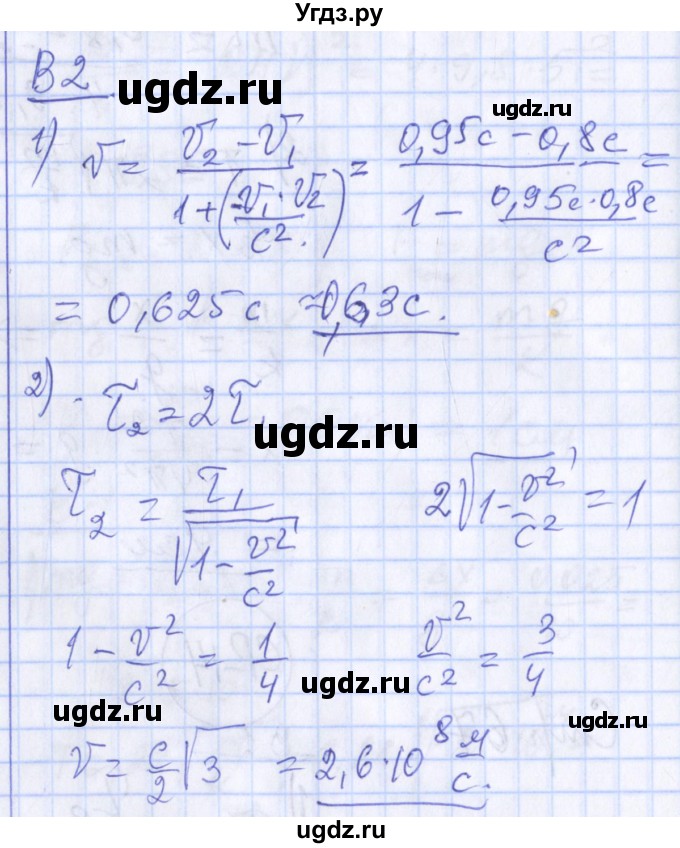 Угдз.ру
В2
ugdz.ru
ugdz.ru
1) v = (v₂ - v₁)/(1 + (-v₁·v₂/c².)) = (0,95c - 0,8c)/(1 - 0,95c·0,8c/c²) =
= 0,625c ≈ 0,63c.
2) τ₂ = 2τ₁
ugdz.ru
τ₂ = τ₁/√(1 - v²/c²)   2√(1 - v²/c²) = 1
1 - v²/c² = 1/4   v²/c² = 3/4
ugdz.ru
v = c/2 √3 = 2,6·10⁸ м/с.
ugdz.ru
ugdz.ru